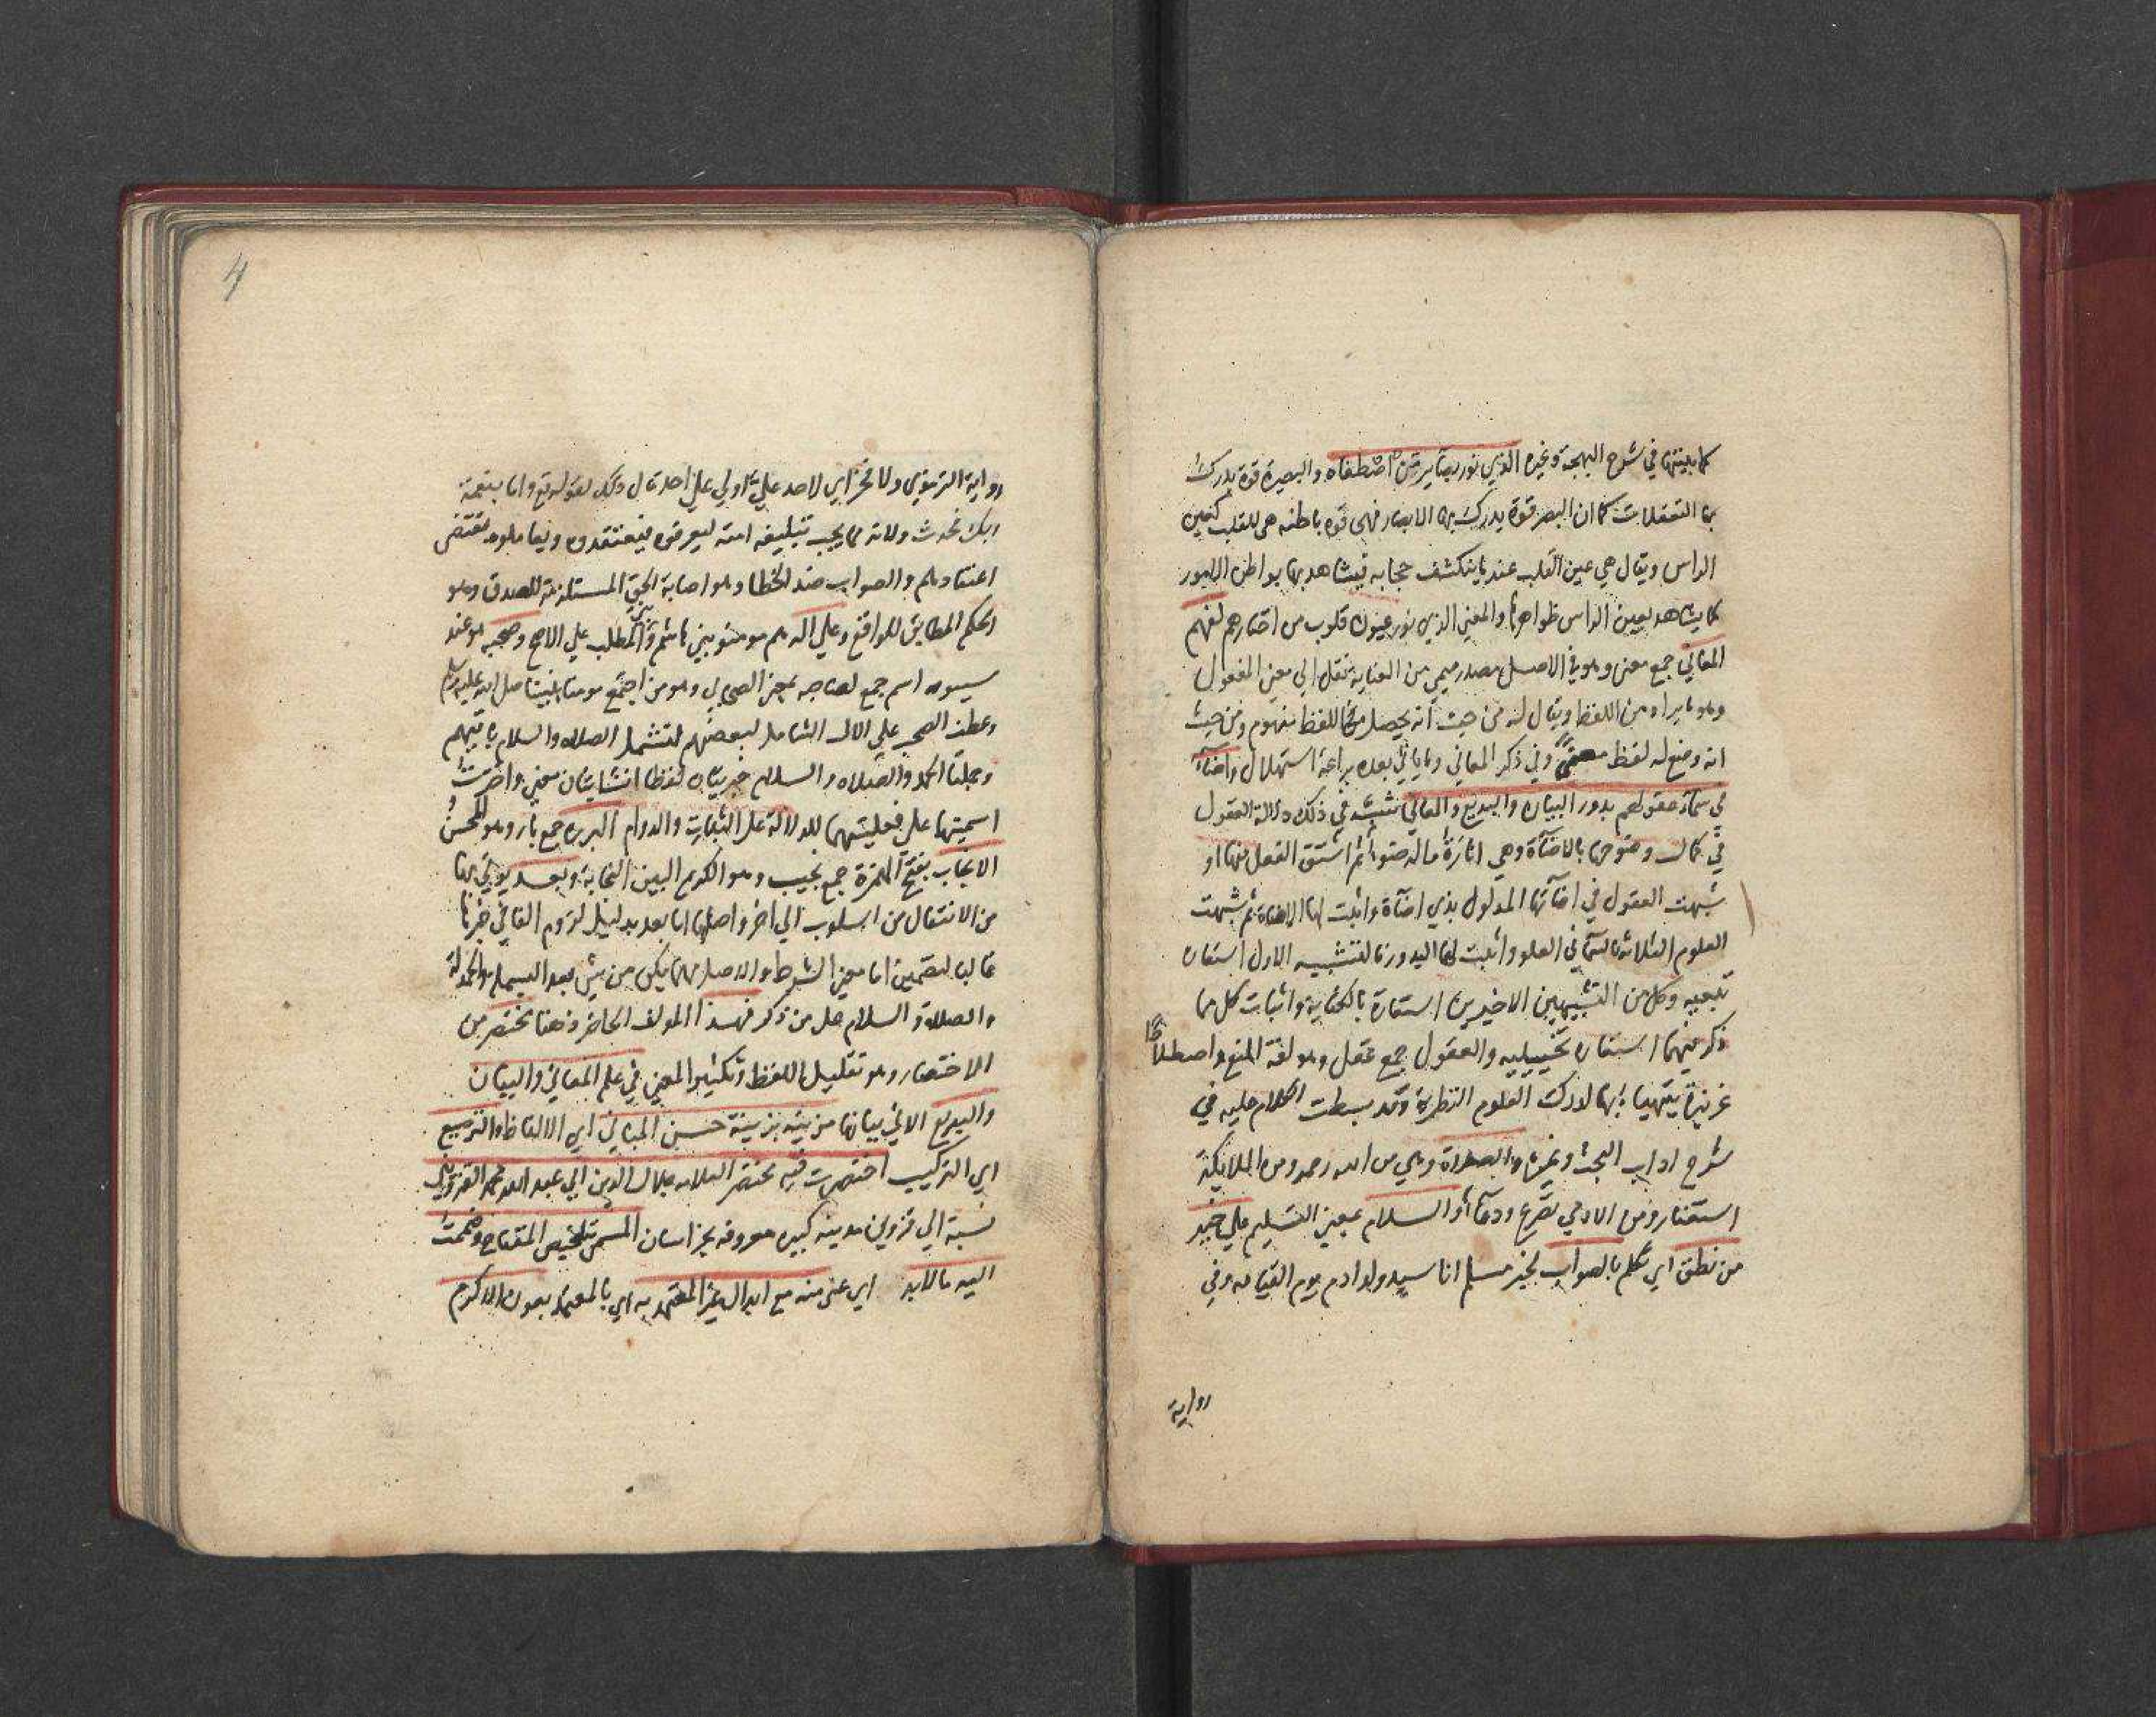 كما بينتها في شرح البهجة وغيره الذي نور بصاير من اصطفاه والبصيرة قوة يدرك
بها التعقلات كما ان البصر قوة يدرك بها الابصار فهى قوه باطنه هى للقلب كعين
الراس ويقال هي عين القلب عند ما ينكشف حجابه فيشاهد بها بواطن الامور
كما يشاهد بعين الراس ظواهرها والمعني الذي نور عيون قلوب من اختارهم لفهم
المعاني جمع معنى وهو في الاصل مصدر ميمي من العناية نقل الي معني المفعول
وهو ما يراد من اللفظ ويقال له من حيث انه يحصل من اللفظ مفهوم ومن حيث
انه وضع له لفظ معنى وفي ذكر المعاني وما ياتي بعده براعة استهلال واضآء
في سماء عقولهم بدور البيان والبديع والمعاني شبه في ذلك دلالة العقول
في كمال وضوحها بالاضآة وهي انارة ماله ضوء ثم اشتق الفعل منها او
شبهت العقول في اضآتها المدلول بذي اضآة واثبت لها الاضاة ثم شبهت
العلوم الثلاثة بالسمآ في العلو واثبت لها البدور فالتشبيه الاول استعاره
تبعيه وكل من التشبيهين الاخيرين استعارة بالكناية واثبات كل مما
ذكر فيهما استعاره تخييليه والعقول جمع عقل وهو لغة المنع واصطلاحا
غريزة يتهيا بها لدرك العلوم النظرية وقد بسطت الكلام عليه في
شرح اداب البحث وغيره والصلاة وهي من الله رحمه ومن الملايكة
استغفار ومن الادمي تضرع ودعآ والسلام بمعني التسليم علي خير
من نطق اي تكلم بالصواب لخبر مسلم انا سيد ولد ادم يوم القيامه وفي
رواية
4
رواية الترمذي ولا فخر اي لاحد علي او لي علي احد قال ذلك لقوله تع واما بنعمة
ربك فحدث ولانه مما يجب تبليغه امته ليعرفوه فيعتقدوه ويعاملوه بمقتضى
اعتقادهم والصواب ضد الخطا وهو اصابة الحق المستلزمة للصدق وهو
الحكم المطابق للواقع وعلي اله هم مومنو بني هاشم وبني المطلب علي الاصح وصحبه هو عند
سيبويه اسم جمع لصاحبه بمعني الصحابي وهو من اجتمع مومنا بنبينا صلى الله عليه وسلم
وعطف الصحب علي الال الشامل لبعضهم لتشمل الصلاه والسلام باقيهم
وجملتا الحمد والصلاه والسلام خبريتان لفظا انشايتان معني واخترت
اسميتها علي فعليتهما للدلالة على الثبات والدوام البرره جمع بار وهو المحسن
الانجاب بفتح الهمزة جمع نجيب وهو الكريم البين النجابة وبعد يوتي بها
من الانتقال من اسلوب الي اخر واصلها اما بعد بدليل لزوم الفا في خبرها
غالبا لتضمين اما معني الشرط والاصل مهما يكن من شي بعد البسملة والحمدلة
والصلاة والسلام على من ذكر فهذا المولف الحاضر ذهنا مختصر من
الاختصار وهو تقليل اللفظ وتكثير المعني في علم المعاني والبيان
والبديع الاتي بيانها مزينة بزينة حسن المباني اي الالفاظ والترصيع
اي التركيب اختصرت فيه مختصر العلامه جلال الدين ابي عبد الله محمد القزويني
نسبة الي قزوين مدينه كبيره معروفه بخراسان المسمى تلخيص المفتاح وضممت
اليه ما لابد اي غنى منه مع ابدال غير المعتمد به اي بالمعتمد بعون الاكرم